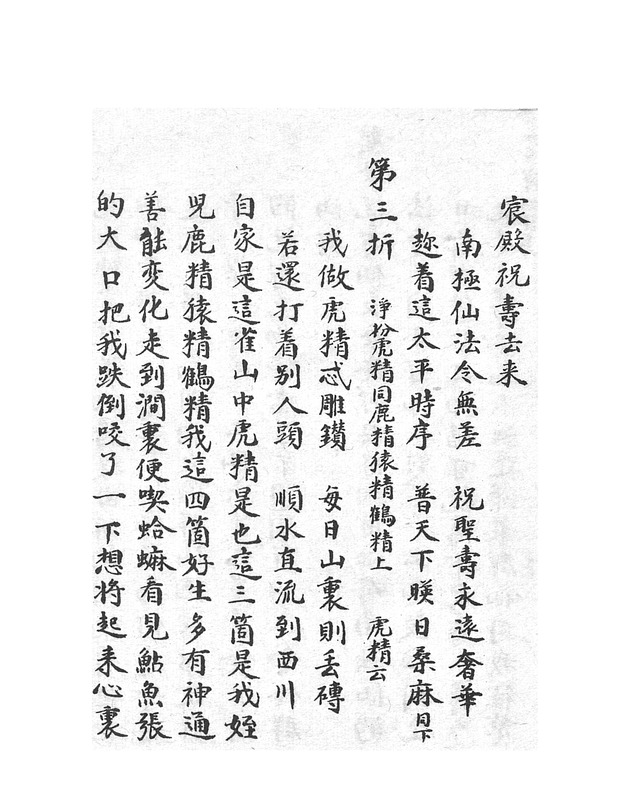 宸殿祝壽去来
南極仙法令無差　祝聖壽永遠奢華
趂着這太平時序　普天下暎日桑麻同下
第三折　淨扮虎精同鹿精猿精鶴精上　虎精云
我做虎精忒雕鑽　每日山裏則丢磚
若還打着别人頭　順水直流到西川
自家是這雀山中虎精是也這三箇是我姪
児鹿精猿精鶴精我這四箇好生多有神通
善能变化走到澗裏便喫蛤蟆看見鮎魚張
的大口把我跌倒咬了一下想将起来心裏